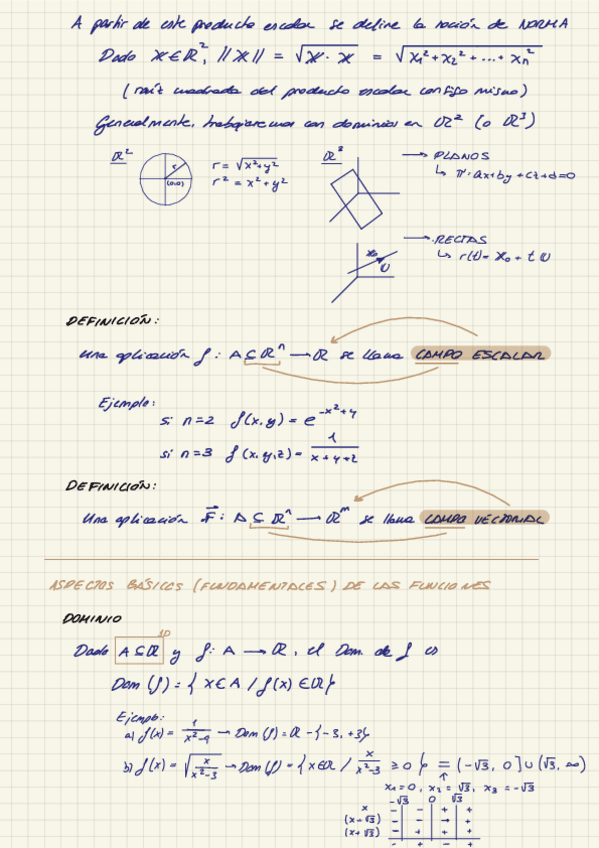 A partir de este producto escalar se define la noción de NORMA
Dado X ∈ ℝ², ||X|| = √(X · X) = √(x₁² + x₂² + ... + xₙ²)
(raíz cuadrada del producto escalar consigo mismo)
Generalmente, trabajaremos con dominios en ℝ² (o ℝ³)
ℝ²
r
(0,0)
r = √(x²+y²)
r² = x²+y²
ℝ³
→ PLANOS
↳ π: ax+by+cz+d=0
x₀
→ RECTAS
↳ r(t) = X₀ + t
DEFINICIÓN:
Una aplicación f: A ⊆ ℝⁿ → ℝ se llama CAMPO ESCALAR
Ejemplo:
si n=2 f(x,y) = e^(-x²+y)
si n=3 f(x,y,z) = 1/(x+y+z)
DEFINICIÓN:
Una aplicación F⃗: A ⊆ ℝⁿ → ℝᵐ se llama CAMPO VECTORIAL
ASPECTOS BÁSICOS (FUNDAMENTALES) DE LAS FUNCIONES
DOMINIO
1D
Dado A ⊆ ℝ y f: A → ℝ, el Dom. de f es
Dom (f) = { x ∈ A / f(x) ∈ ℝ }
Ejemplo:
a) f(x) = 1/(x²-9) → Dom (f) = ℝ - {-3, +3}
b) f(x) = √(x/(x²-3)) → Dom (f) = { x ∈ ℝ / x/(x²-3) ≥ 0 } = (-√3, 0] ∪ (√3, ∞)
x₁ = 0, x₂ = √3, x₃ = -√3
-√3 0 √3
x - - + +
(x-√3) - - - +
(x+√3) - + + +
- + - +